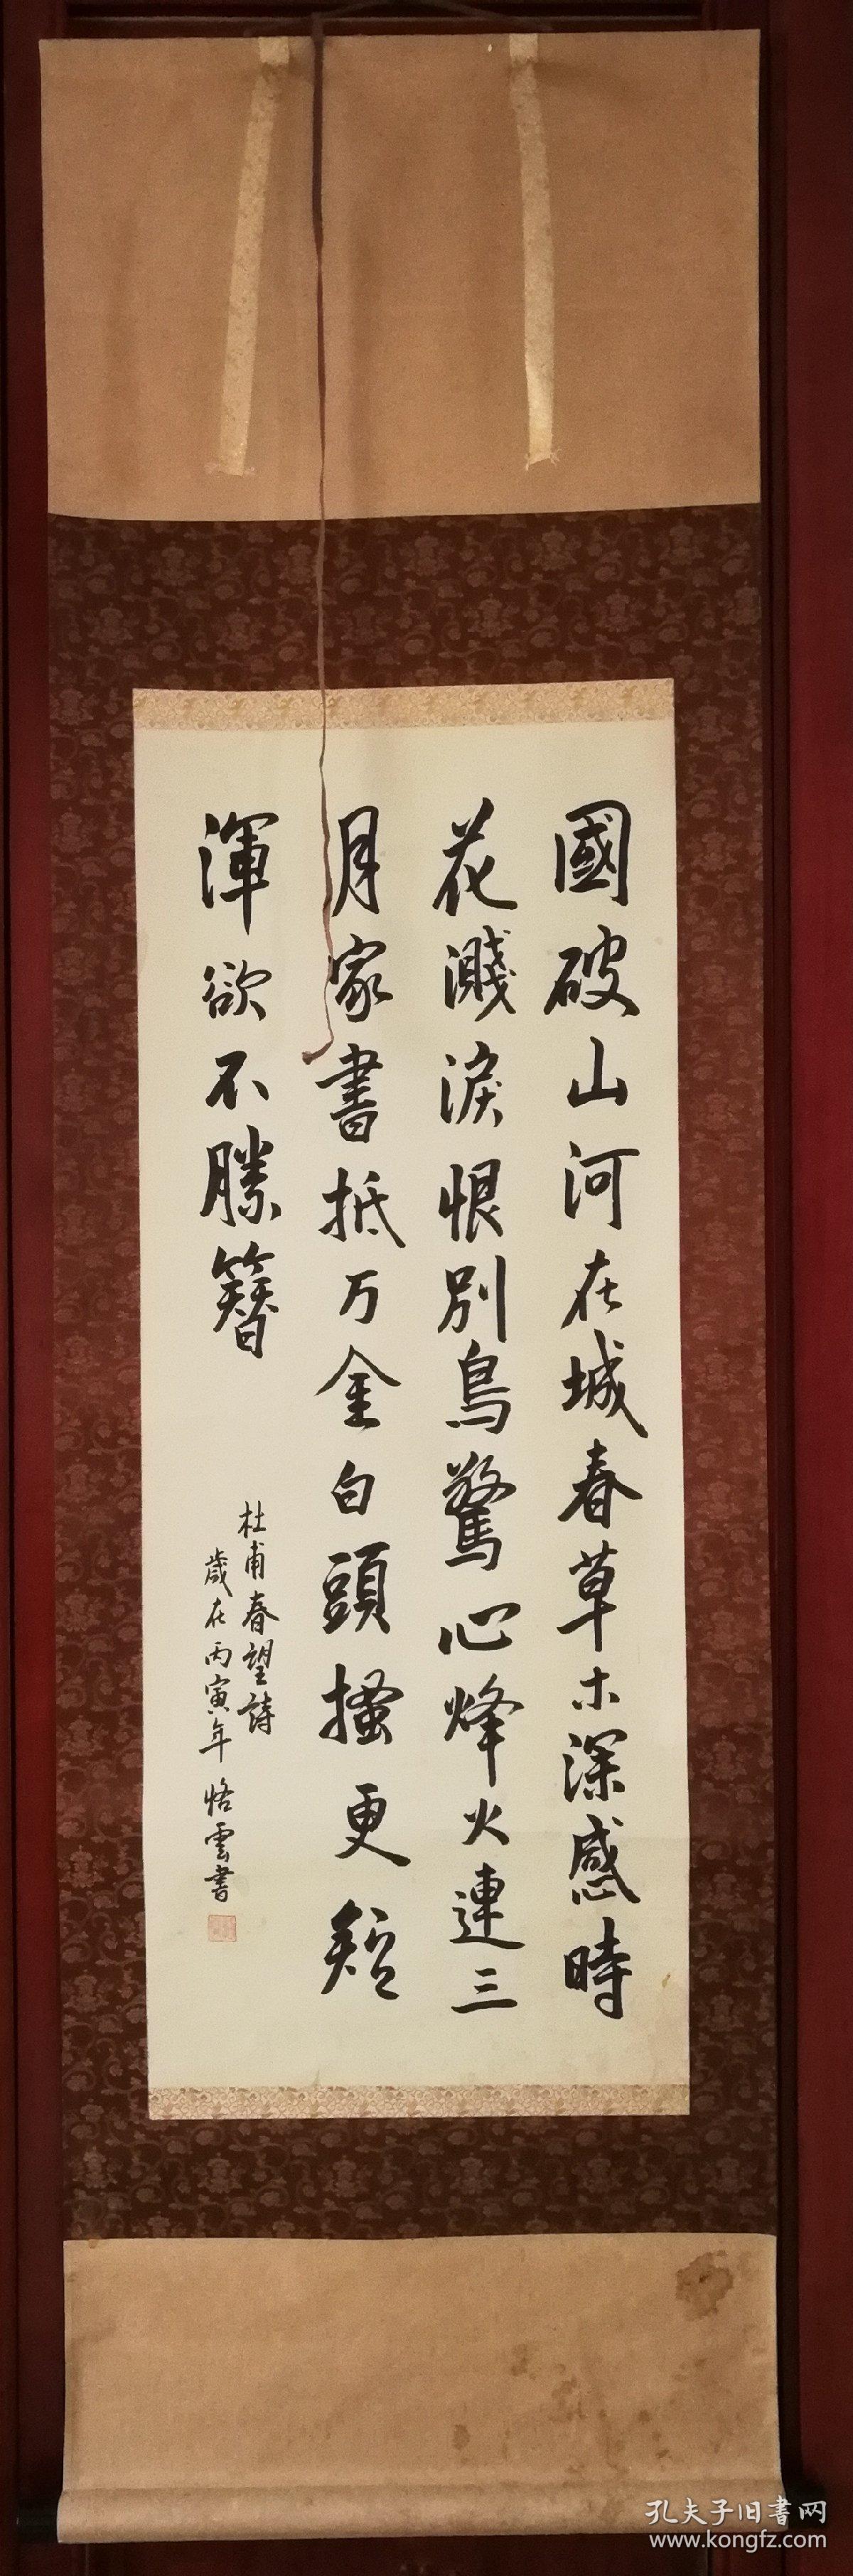 國破山河在城春草木深感時
花濺淚恨別鳥驚心烽火連三
月家書抵万金白頭搔更短
渾欲不勝簪
杜甫春望詩
歲在丙寅年 恪雲書
孔夫子旧书网
www.kongfz.com